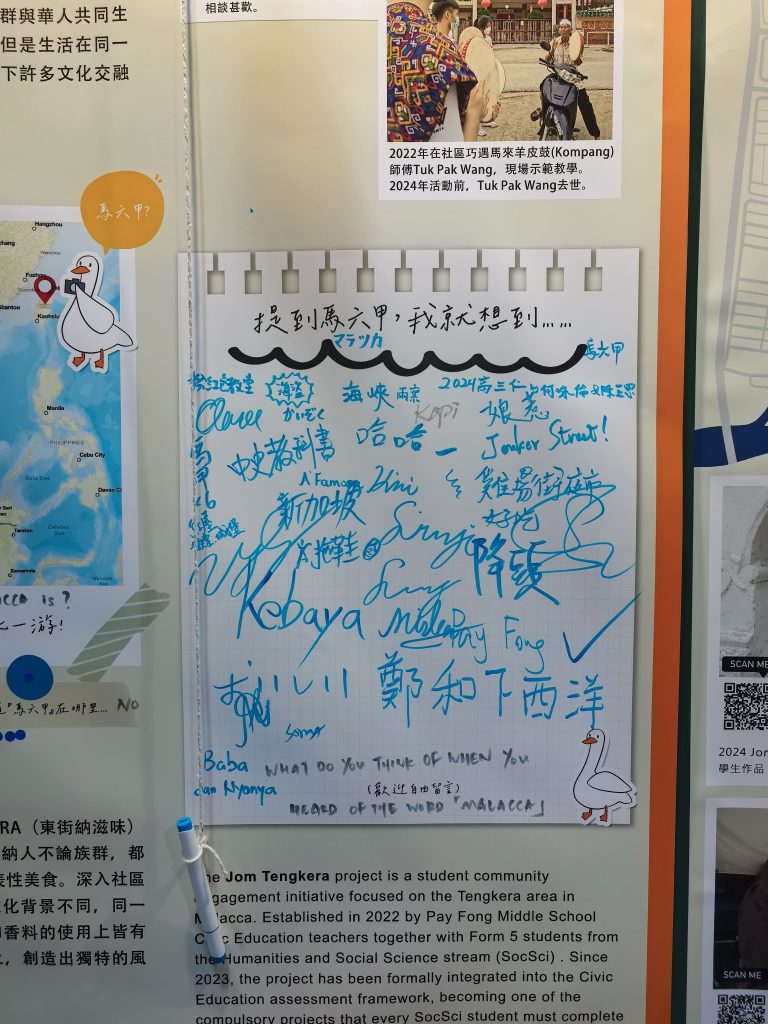 群與華人共同生
但是生活在同一
下許多文化交融
相談甚歡。
2022年在社區巧遇馬來羊皮鼓(Kompang)
師傅Tuk Pak Wang，現場示範教學。
2024年活動前，Tuk Pak Wang去世。
馬六甲?
Hangzhou
Wenzhou
Fuzhou
Shantou
Kaohsiu
Manila
PHILIPPINES
Cebu City
Davao Ci
Sulu Sea
Celebes Sea
Tarakan
Samarinda
is?
一游!
馬六甲在哪里... NO
提到馬六甲，我就想到......
マラッカ
馬六甲
海盜
海峽 兩宗
2024高三仁
Clare
かいぞく
Kopi
娘惹
中史教科書
哈哈
Jonker Street!
A'Famosa
新加坡
雞場街夜市
好吃
降頭
Kebaya
Pay Fong
おいしい
鄭和下西洋
Baba
dan Nyonya
WHAT DO YOU THINK OF WHEN YOU
(歡迎自由留言)
HEARD OF THE WORD「MALACCA」
RA（東街納滋味）
納人不論族群，都
表性美食。深入社區
化背景不同，同一
香料的使用上皆有
，創造出獨特的風
The Jom Tengkera project is a student community
engagement initiative focused on the Tengkera area in
Malacca. Established in 2022 by Pay Fong Middle School
Civic Education teachers together with Form 5 students from
the Humanities and Social Science stream (SocSci) . Since
2023, the project has been formally integrated into the Civic
Education assessment framework, becoming one of the
compulsory projects that every SocSci student must complete
SCAN ME
2024 Jon
學生作品
SCAN ME